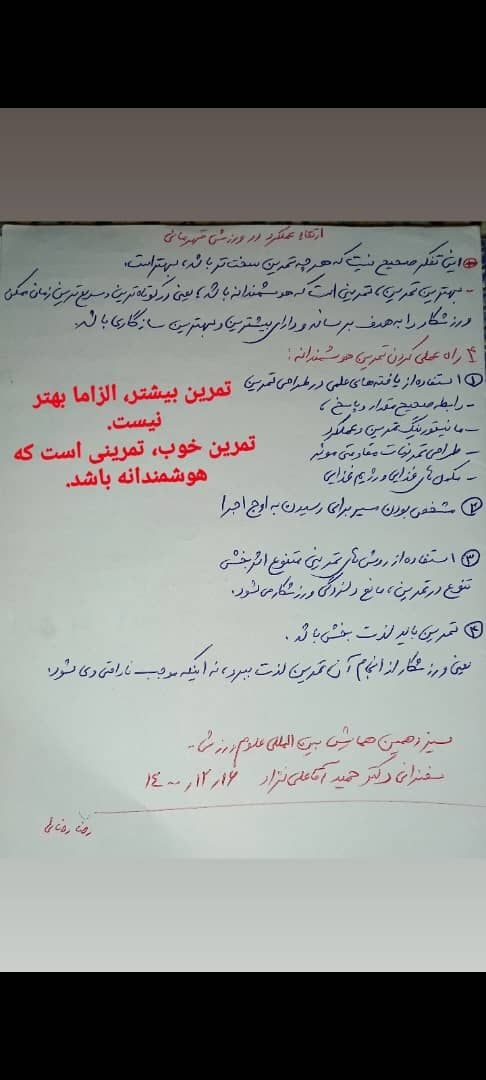 ارتقاء عملکرد در ورزش قهرمانی
این تفکر صحیح نیست که هر چه تمرین سخت تر باشد، بهتر است.
- بهترین تمرین، تمرینی است که هوشمندانه باشد، یعنی در کوتاه ترین و سریع ترین زمان ممکن
ورزشکار را به هدف برساند و دارای بیشترین و بهترین سازگاری باشد.
۴ راه عملی کردن تمرین هوشمندانه:
① استفاده از یافته های علمی در طراحی تمرین
- رابطه صحیح مقدار و پاسخ،
- مانیتورینگ تمرین و عملکرد
- طراحی تمرینات مقاومتی موثر
- مکمل های غذایی و رژیم غذایی
تمرین بیشتر، الزاما بهتر
نیست.
تمرین خوب، تمرینی است که
هوشمندانه باشد.
② مشخص بودن مسیر برای رسیدن به اوج اجرا
③ استفاده از روش های تمرینی متنوع اثربخشی
تنوع در تمرین، مانع دلزدگی ورزشکار می شود.
④ تمرین باید لذت بخش باشد.
یعنی ورزشکار از انجام آن تمرین لذت ببرد، نه اینکه موجب ناراحتی وی شود.
سیزدهمین همایش بین المللی علوم ورزشی -
سخنرانی دکتر حمید آقاعلی نژاد ۱۴۰۰/۱۲/۱۶
رضا رضائی